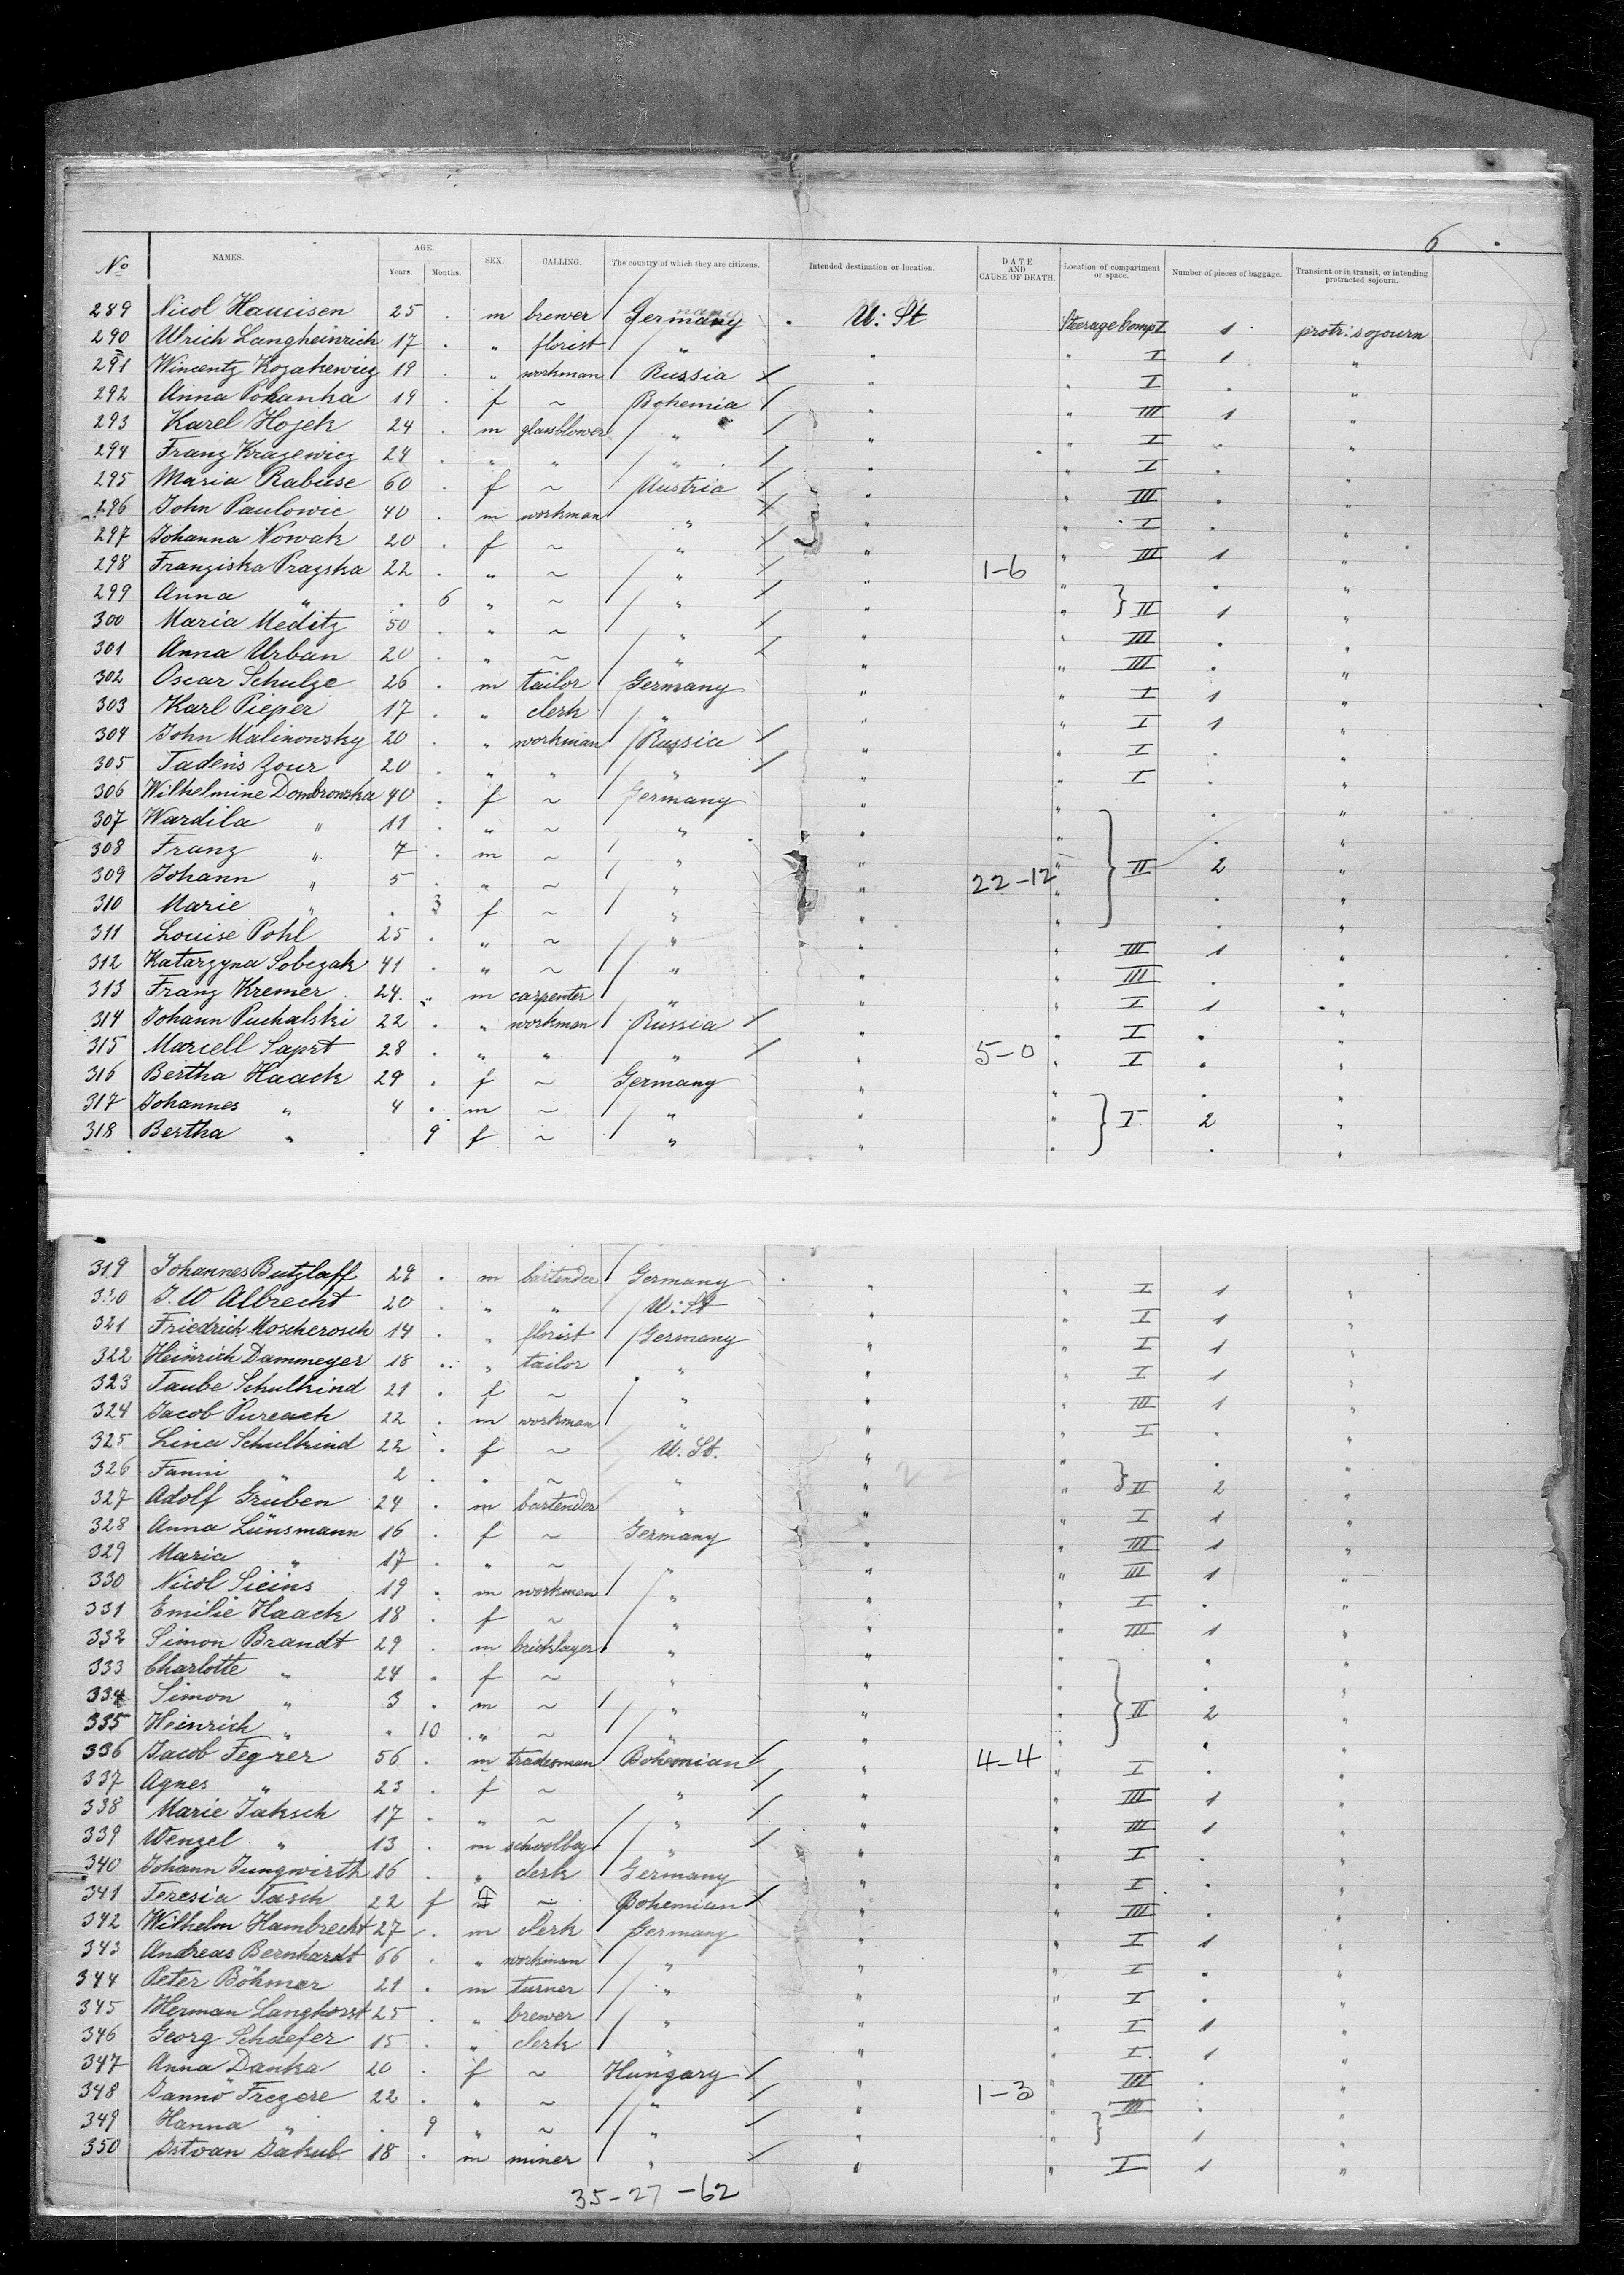 6
No NAMES. AGE. Years. Months. SEX. CALLING. The country of which they are citizens. Intended destination or location. DATE AND CAUSE OF DEATH. Location of compartment or space. Number of pieces of baggage. Transient or in transit, or intending protracted sojourn.
289 Nicol Haucisen 25 . m brewer Germany . U: St Steerage Compt I 1 protr: sojourn
290 Ulrich Langheinrich 17 . " florist " " " I 1 "
291 Wincentz Kozakewicz 19 . " workman Russia " " I . "
292 Anna Pohanka 19 . f ~ Bohemia " " III 1 "
293 Karel Hojek 24 . m glassblower " " " I " "
294 Franz Krazewicz 24 . " " " " " I . "
295 Maria Rabuse 60 . f ~ Austria " " III . "
296 John Paulowic 40 . m workman " " " I . "
297 Johanna Nowak 20 . f ~ " " " III 1 "
298 Franziska Prazska 22 . " ~ " " 1-6 " . "
299 Anna " . 6 " ~ " " " II 1 "
300 Maria Meditz 50 . " ~ " " " III . "
301 Anna Urban 20 . " ~ " " " III . "
302 Oscar Schulze 26 . m tailor Germany " " I 1 "
303 Karl Pieper 17 . " clerk " " " I 1 "
304 John Malinowsky 20 . " workman Russia " " I . "
305 Tadeus Zour 20 . " " " " " I . "
306 Wilhelmine Dombrowska 40 . f ~ Germany " " . "
307 Wardila " 11 . " ~ " " " . "
308 Franz " 7 . m ~ " " " II 2 "
309 Johann " 5 . " ~ " " 22-12 " . "
310 Marie " . 3 f ~ " " " . "
311 Louise Pohl 25 . " ~ " " " III 1 "
312 Katarzyna Sobczak 41 . " ~ " " " III . "
313 Franz Kremer 24 . m carpenter " " " I 1 "
314 Johann Puchalski 22 . " workman Russia " " I . "
315 Marcell Saprt 28 . " " " " 5-0 " I . "
316 Bertha Haack 29 . f ~ Germany " " . "
317 Johannes " 4 . m ~ " " " I 2 "
318 Bertha " 9 f ~ " " " . "
319 Johannes Butzlaff 29 . m bartender Germany " " I 1 "
320 J. W Albrecht 20 . " " U: St " " I 1 "
321 Friedrich Moscherosch 14 . " florist Germany " " I 1 "
322 Heinrich Dammeyer 18 . " tailor " " " I 1 "
323 Taube Schulkind 21 . f ~ " " " III 1 "
324 Jacob Pureach 22 . m workman " " " I . "
325 Lina Schulkind 22 . f ~ U. St. " " . "
326 Fanni " 2 . " ~ " " " II 2 "
327 Adolf Gruben 24 . m bartender " " " I 1 "
328 Anna Lünsmann 16 . f ~ Germany " " III 1 "
329 Maria " 17 . " ~ " " " III 1 "
330 Nicol Sieins 19 . m workman " " " I . "
331 Emilie Haack 18 . f ~ " " " III 1 "
332 Simon Brandt 29 . m bricklayer " " " . "
333 Charlotte " 24 . f ~ " " " . "
334 Simon " 3 . m ~ " " " II 2 "
335 Heinrich " " 10 " ~ " " " . "
336 Jacob Fegrer 56 . m tradesman Bohemian " 4-4 " I . "
337 Agnes " 23 . f ~ " " " III 1 "
338 Marie Jäksch 17 . " ~ " " " III 1 "
339 Wenzel " 13 . m schoolboy " " " I . "
340 Johann Jungwirth 26 . " clerk Germany " " I . "
341 Teresia Tasch 22 f ~ Bohemian " " III . "
342 Wilhelm Hambrecht 27 . m clerk Germany " " I 1 "
343 Andreas Bernhardt 66 . " workman " " " I . "
344 Peter Böhmer 21 . m turner " " " I . "
345 Herman Langhorst 25 . " brewer " " " I 1 "
346 Georg Schaefer 15 . " clerk " " " I 1 "
347 Anna Danka 20 . f ~ Hungary " " III . "
348 Janno Frezere 22 . " ~ " " 1-3 " III . "
349 Hanna " . 9 " ~ " " " 1 "
350 Istvan Jakub 18 . m miner " " " I 1 "
35-27-62